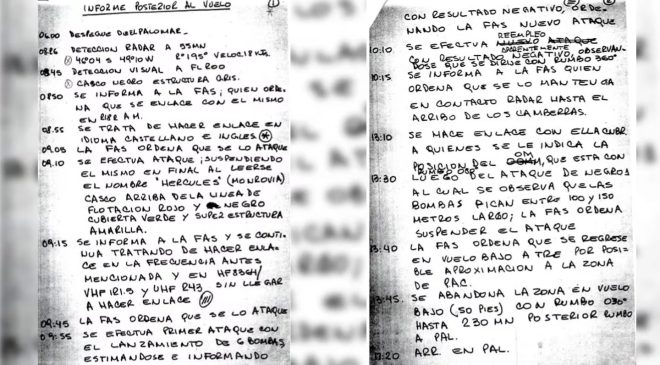 INFORME POSTERIOR AL VUELO
0400 DESPEGUE DE EL PALOMAR.
0826 DETECCION RADAR A 55MN
42°04 S 49°10 W R°195° VELOC:18 KTS.
0845 DETECCION VISUAL A FL200
CASCO NEGRO ESTRUCTURA GRIS.
0850 SE INFORMA A LA FAS; QUIEN ORDE-
NA QUE SE ENLACE CON EL MISMO
EN 2182 AM.
08:55 SE TRATA DE HACER ENLACE EN
IDIOMA CASTELLANO E INGLES *
09:05 LA FAS ORDENA QUE SE LO ATAQUE
09:10 SE EFECTUA ATAQUE; SUSPENDIENDO
EL MISMO EN FINAL AL LEERSE
EL NOMBRE "HERCULES" (MONROVIA)
CASCO ARRIBA DE LA LINEA DE
FLOTACION ROJO Y NEGRO
CUBIERTA VERDE Y SUPER ESTRUCTURA
AMARILLA.
09:15 SE INFORMA A LA FAS Y SE CONTI-
NUA TRATANDO DE HACER ENLA-
CE EN LA FRECUENCIA ANTES
MENCIONADA Y EN HF
VHF 121.5 Y UHF 243 SIN LLEGAR
A HACER ENLACE
09:45 LA FAS ORDENA QUE SE LO ATAQUE
09:55 SE EFECTUA PRIMER ATAQUE CON
EL LANZAMIENTO DE 6 BOMBAS,
ESTIMANDOSE E INFORMANDO
CON RESULTADO NEGATIVO, ORDE-
NANDO LA FAS NUEVO ATAQUE
10:10 SE EFECTUA REEMPLEO
APARENTEMENTE
CON RESULTADO NEGATIVO, OBSERVAN-
DOSE QUE SE DIRIGE CON RUMBO 360°
10:15 SE INFORMA A LA FAS QUIEN
ORDENA QUE SE LO MANTENGA
EN CONTACTO RADAR HASTA EL
ARRIBO DE LOS CAMBERRAS.
13:10 SE HACE ENLACE CON EL CANBR
A QUIENES SE LE INDICA LA
POSICION DEL QUE ESTA CON
RUMBO
13:30 LUEGO DEL ATAQUE DE NEGROS
AL CUAL SE OBSERVA QUE LAS
BOMBAS PICAN ENTRE 100 Y 150
METROS LARGO; LA FAS ORDENA
SUSPENDER EL ATAQUE
13:40 LA FAS ORDENA QUE SE REGRESE
EN VUELO BAJO A TRE POR POSI-
BLE APROXIMACION A LA ZONA
DE PAC.
13:45. SE ABANDONA LA ZONA EN VUELO
BAJO (50 PIES) CON RUMBO 030°
HASTA 230 MN POSTERIOR RUMBO
A PAL.
ARR EN PAL.